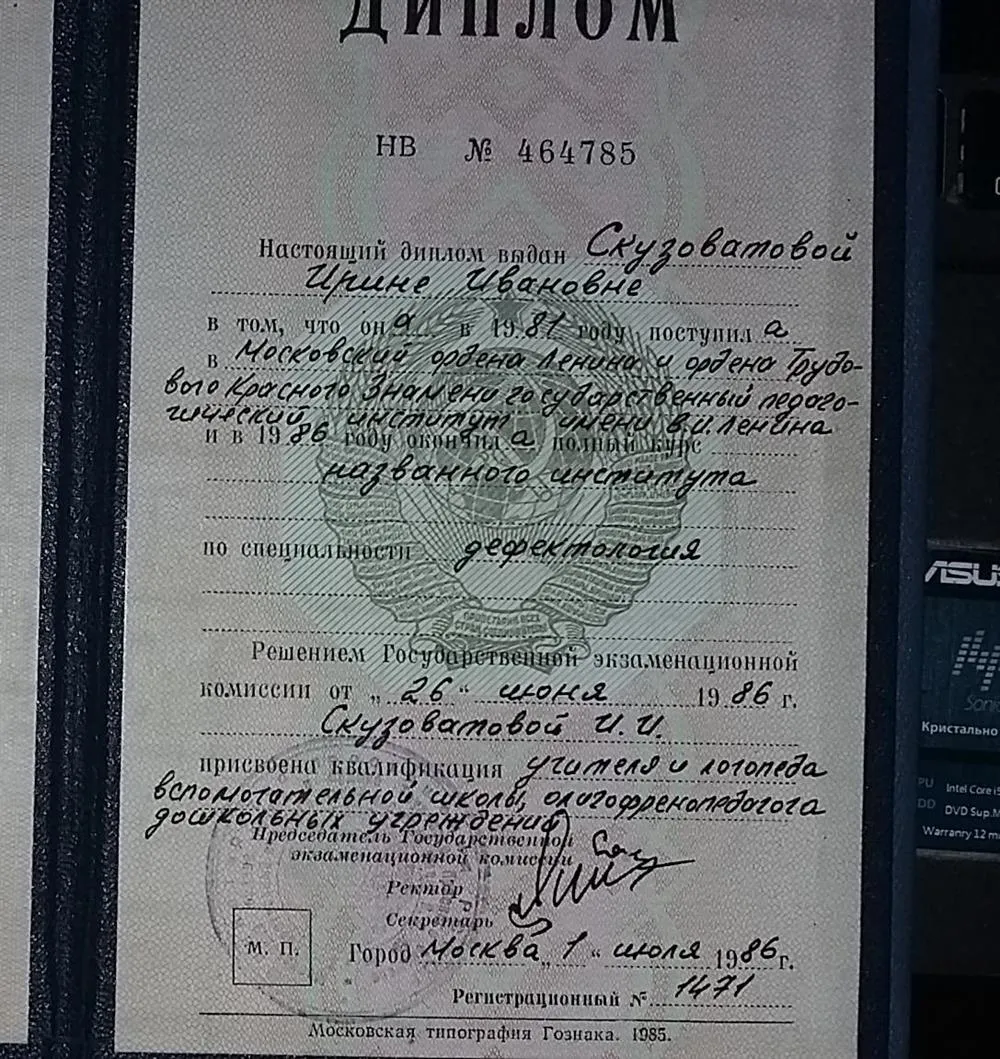 ДИПЛОМ
НВ № 464785
Настоящий диплом выдан Скузоватовой
Ирине Ивановне
в том, что она в 1981 году поступила
в Московский ордена Ленина и ордена Трудо-
вого Красного Знамени государственный педаго-
гический институт имени В.И.Ленина
и в 1986 году окончила полный курс
названного института
по специальности дефектология
ПРОЛЕТАРИИ ВСЕХ
СТРАН СОЕДИНЯЙТЕСЬ
Решением Государственной экзаменационной
комиссии от „26“ июня 1986 г.
Скузоватовой И. И.
присвоена квалификация учителя и логопеда
вспомогательной школы, олигофренопедагога
дошкольных учреждений
Председатель Государственной
экзаменационной комиссии
Ректор
Секретарь
М. П.
Город Москва „1“ июля 1986 г.
Регистрационный № 1471
Московская типография Гознака. 1985.
ASUS
Кристально
Intel Core i5
DVD Sup.M
Warranry 12 m